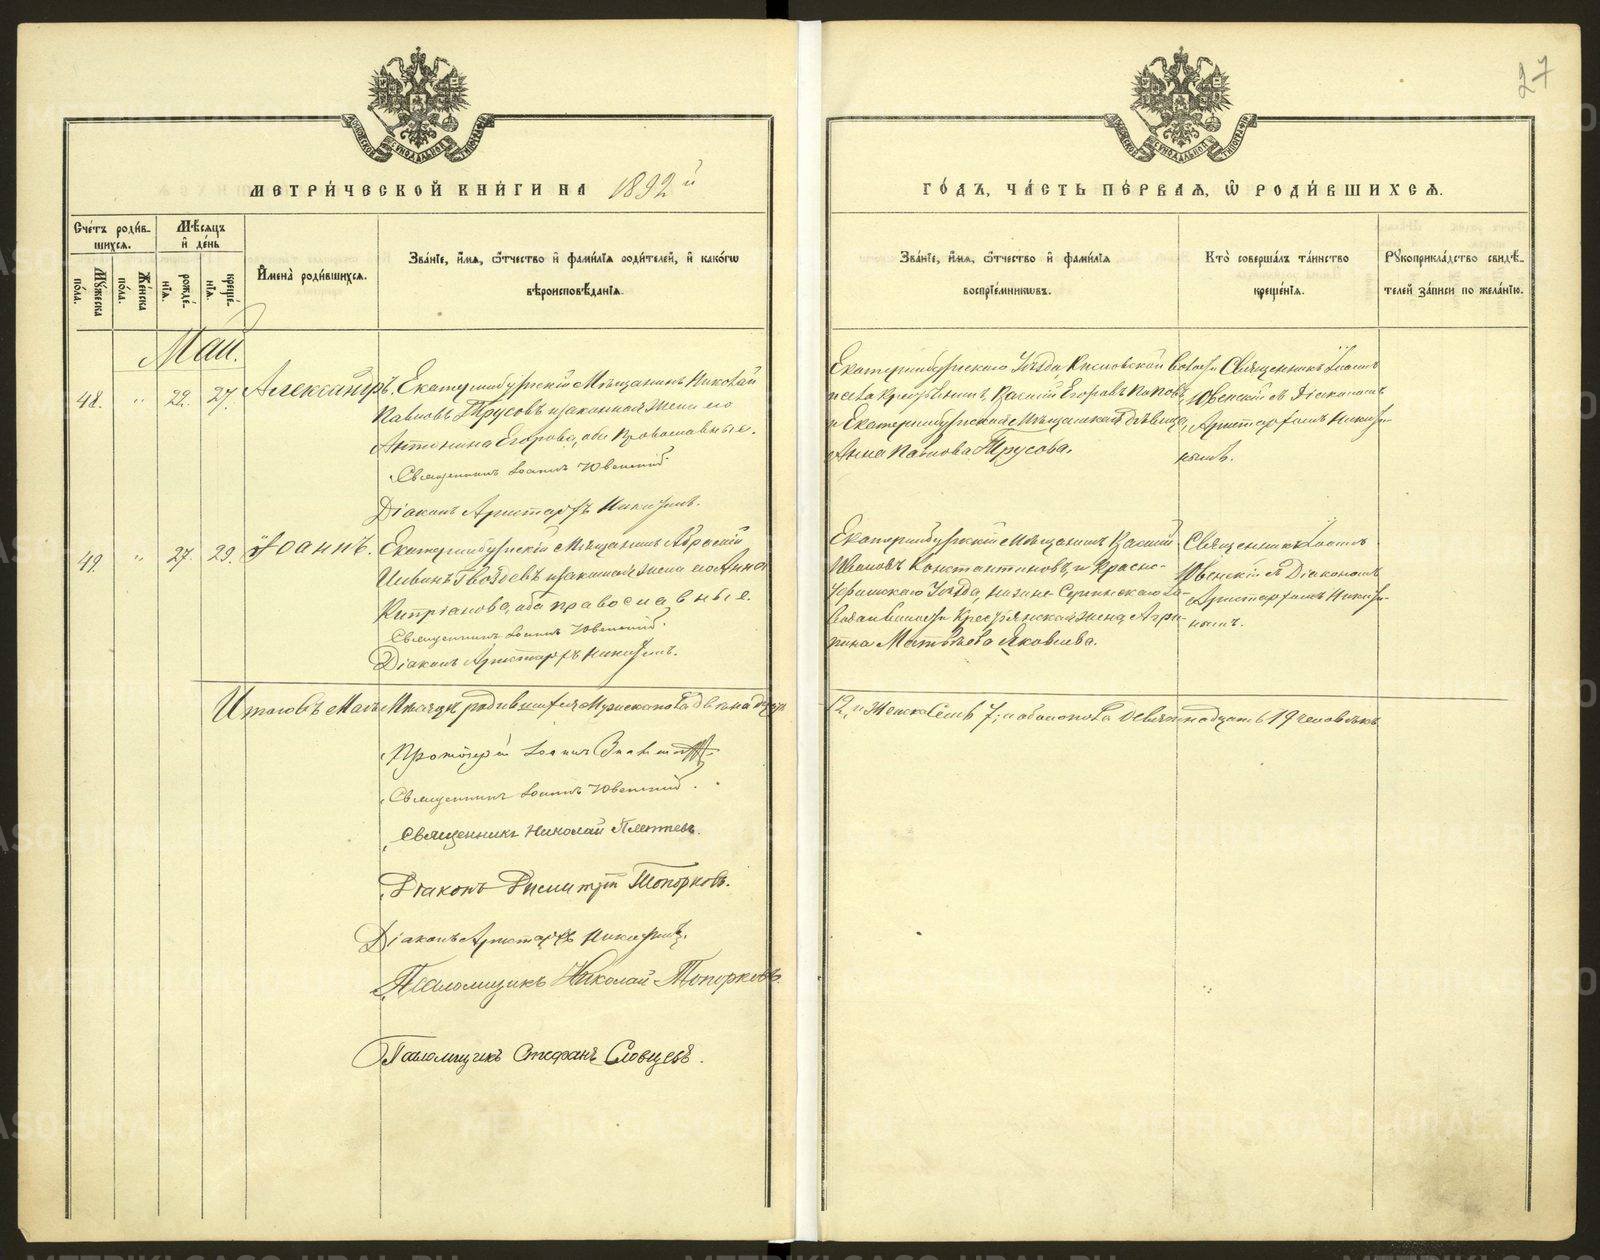 27
МОСКОВСКОЙ СУНОДАЛЬНОЙ ТИПОГРАФІИ
МОСКОВСКОЙ СУНОДАЛЬНОЙ ТИПОГРАФІИ
МЕТРИ́ЧЕСКОЙ КНИ́ГИ НА 1892й
ГО́ДЪ, ЧА́СТЬ ПЕ́РВАЯ, Ѡ РОДИ́ВШИХСЯ.
Сче́тъ роди́в-
шихся.
Мужеска по́ла.
Же́нска по́ла.
Мѣ́сяцъ
и де́нь
рожде́-
нія.
креще́-
нія.
Имена̀ роди́вшихся.
Зва́ніе, и́мя, ѻ́тчество и фами́лія роди́телей, и како́гѡ
вѣроисповѣ́данія.
Зва́ніе, и́мя, ѻ́тчество и фами́лія
воспріе́мникѡвъ.
Кто̀ соверша́лъ та́инство
креще́нія.
Рукоприкла́дство свидѣ́-
телей за́писи по жела́нію.
Май.
48. " 22. 27. Александръ. Екатеринбургскій Мѣщанинъ Николай
Павловъ Трусовъ и законная жена его
Антонина Егорова, оба Православные.
Священникъ Іоаннъ Ювенскій.
Діаконъ Аристархъ Никитинъ.
Екатеринбургскаго Уѣзда, Кисловской волости
и села крестьянинъ, Василій Егоровъ Поповъ,
и Екатеринбургская Мѣщанская дѣвица,
Анна Павлова Трусова.
Священникъ Іоаннъ
Ювенскій съ Діакономъ
Аристархомъ Никити-
нымъ.
49. " 27. 29. Іоаннъ. Екатеринбургскій Мѣщанинъ
Гвоздевъ и законная жена его Анна
Кипріанова, оба православные.
Священникъ Іоаннъ Ювенскій.
Діаконъ Аристархъ Никитинъ.
Екатеринбургскій Мѣщанинъ Василій
Ивановъ Константиновъ, и Красно-
уфимскаго Уѣзда, Нижне-Сергинскаго за-
вода Крестьянская жена Агри-
пина Матвѣева Яковлева.
Священникъ Іоаннъ
Ювенскій съ Діакономъ
Аристархомъ Никити-
нымъ.
Итого въ Маѣ Мѣсяцѣ родившихся Мужеска пола двѣнадцать
12, и Женска семь 7; и обоего пола девятнадцать 19 человѣкъ
Протоіерей Іоаннъ
Священникъ Іоаннъ Ювенскій.
Священникъ Николай Плетневъ.
Діаконъ Димитрій Топорковъ.
Діаконъ Аристархъ Никитинъ.
Псаломщикъ Николай Топорковъ.
Псаломщикъ Стефанъ Словцевъ.
METRIKI.GASO-URAL.RU